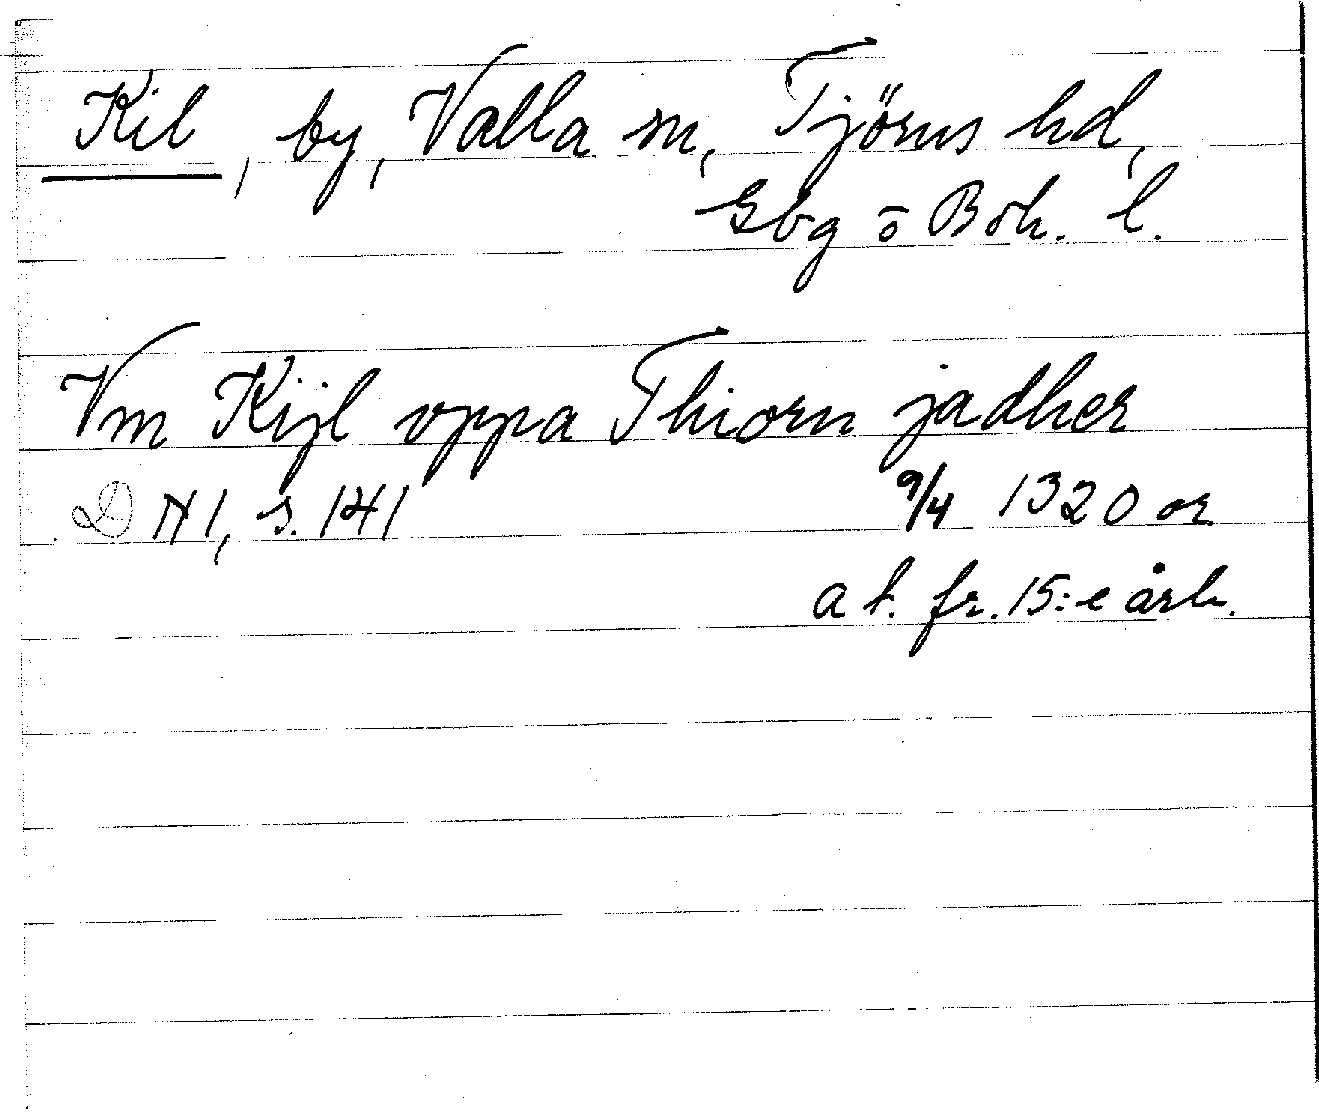 Kil, by, Valla sn, Tjörns hd,
Gbg o Boh. l.
Vm Kijl vppa Thiorn jadher
DN1, s. 141 9/4 1320 or
a t. fr. 15:e årh.